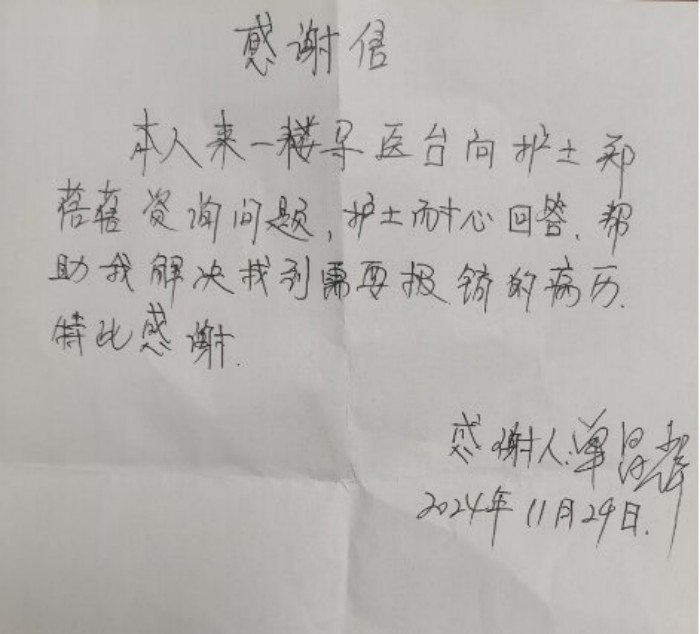 感谢信
本人来一楼导医台向护士郑
蓓蓓资询问题,护士耐心回答,帮
助我解决找到需要报销的病历.
特此感谢.
感谢人:单
2024年11月29日.